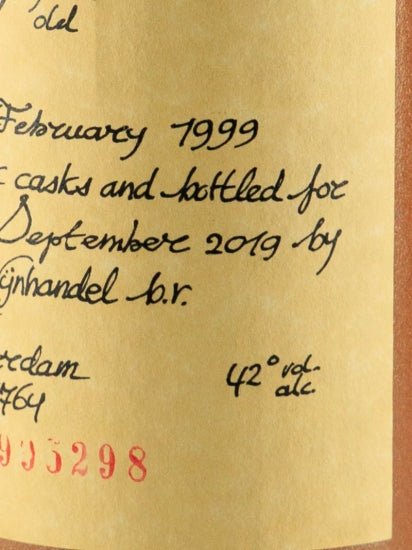 old
February 1999
casks and bottled for
September 2019 by
ijnhandel b.r.
erdam
42° vol.
alc.
764
995298